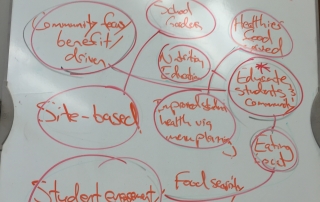 School
Gardens
Community focus/
benefit/
driven
Healthier
food
served
Nutrition
Education
*
Educate
students/
community
Site-based
Improved student
health via
menu planning
Eating
Student engagement/
Food security